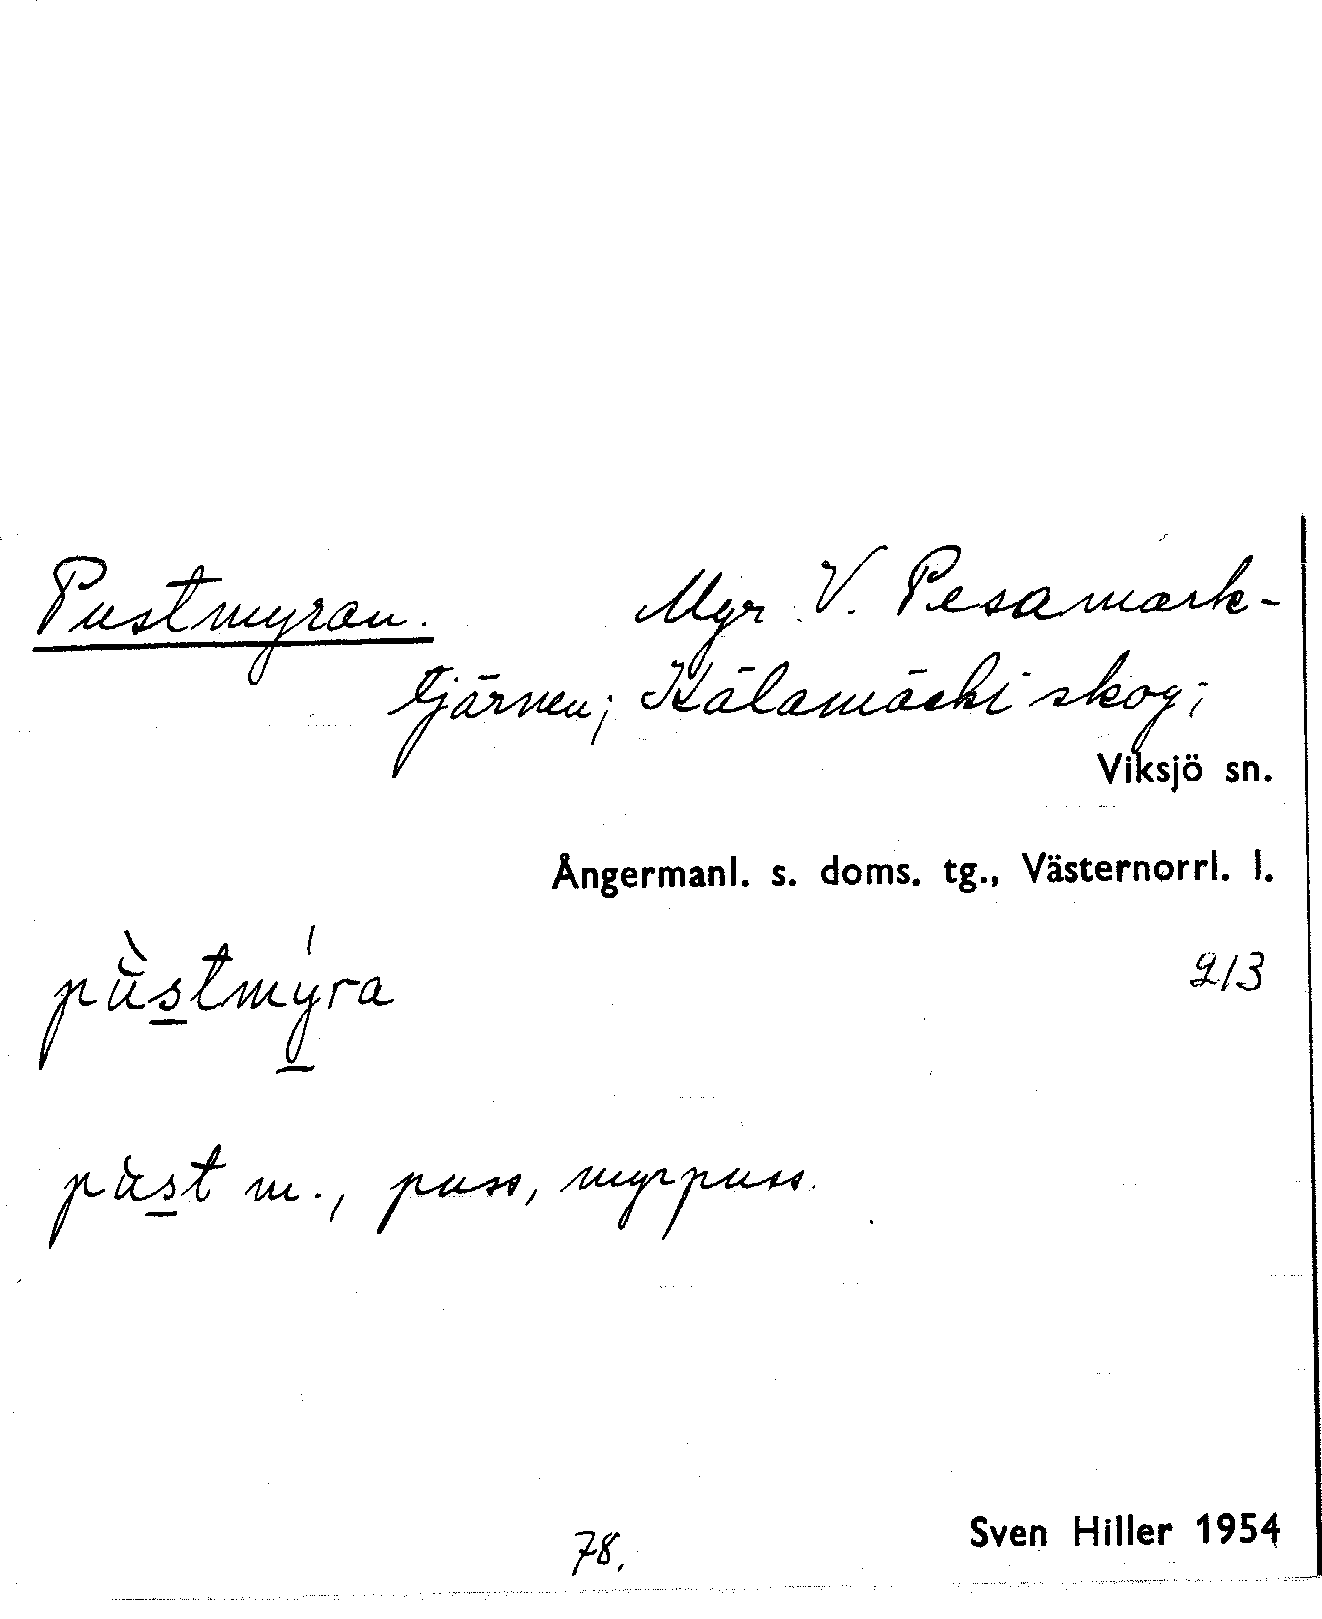 Pustmyran. Myr V. Pesamark-
tjärnen; Kälamäcki skog;
Viksjö sn.
Ångermanl. s. doms. tg., Västernorrl. l.
pùstmýra 213
pùst m., puss, myrpuss.
78. Sven Hiller 1954